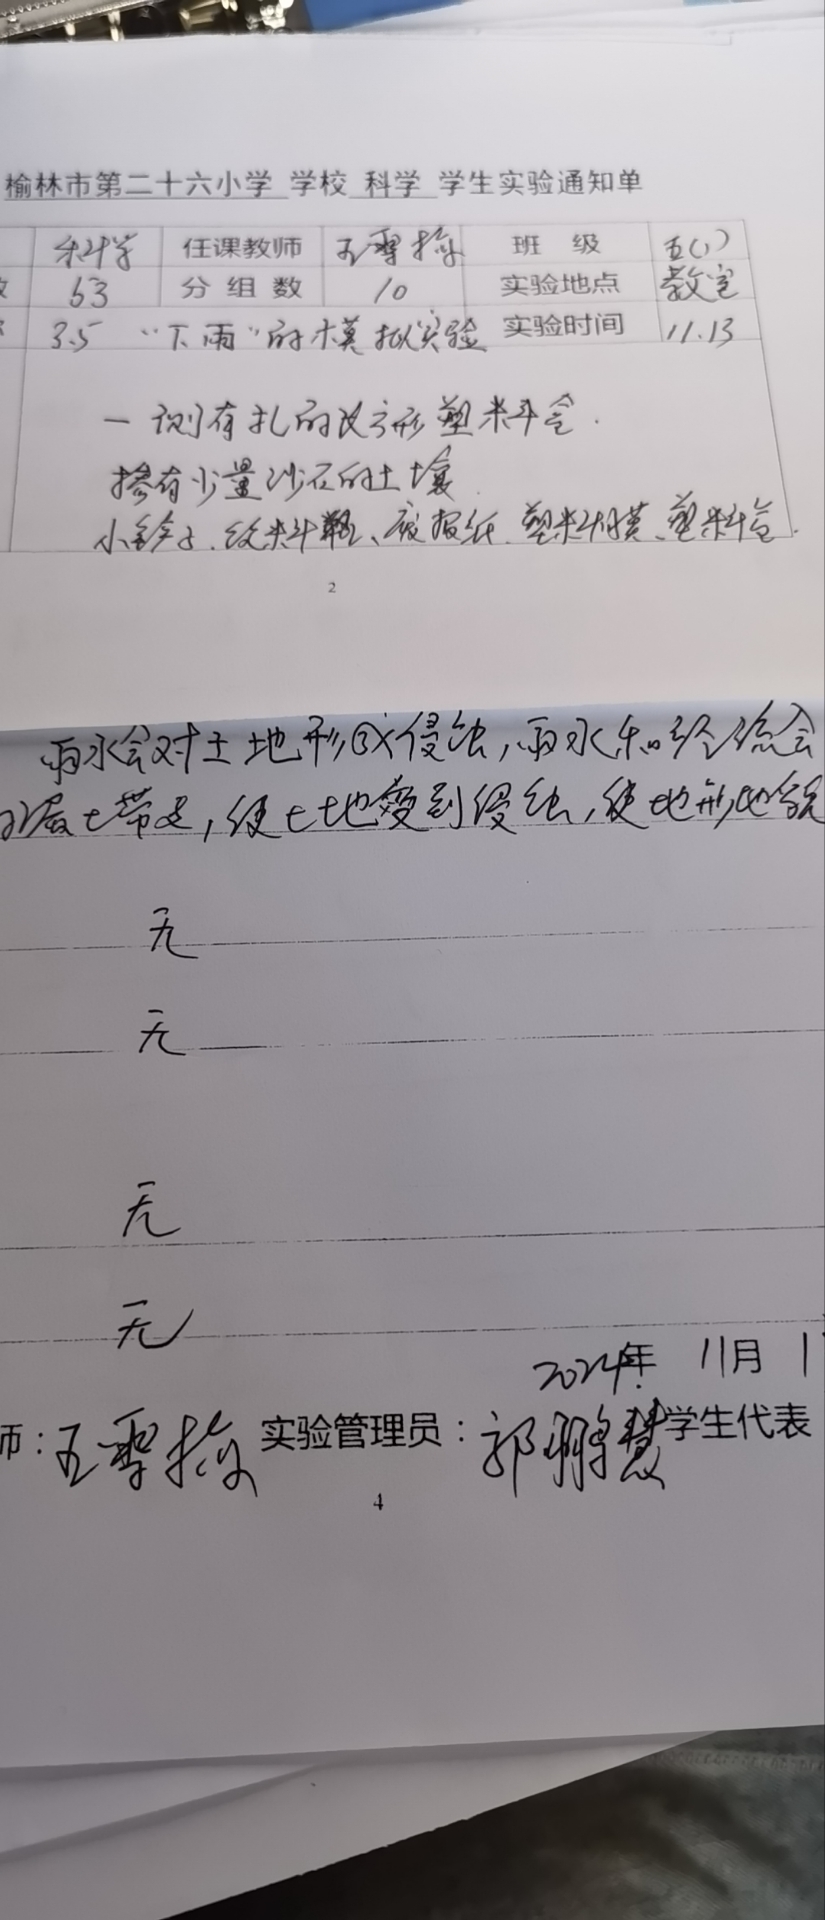 榆林市第二十六小学 学校 科学 学生实验通知单
科学 任课教师 王雪梅 班 级 五(1)
53 分组数 10 实验地点 教室
3.5 “下雨”的模拟实验 实验时间 11.13
一侧有孔的长方形塑料盒.
掺有少量沙石的土壤
小铲子、饮料瓶、废报纸、塑料膜、塑料盒.
2
雨水会对土地形成侵蚀,雨水和径流会
表土带走,使土地受到侵蚀,使地形地貌
无
无
无
无
2024年 11月 1
师:王雪梅 实验管理员:郭鹏慧 学生代表
4